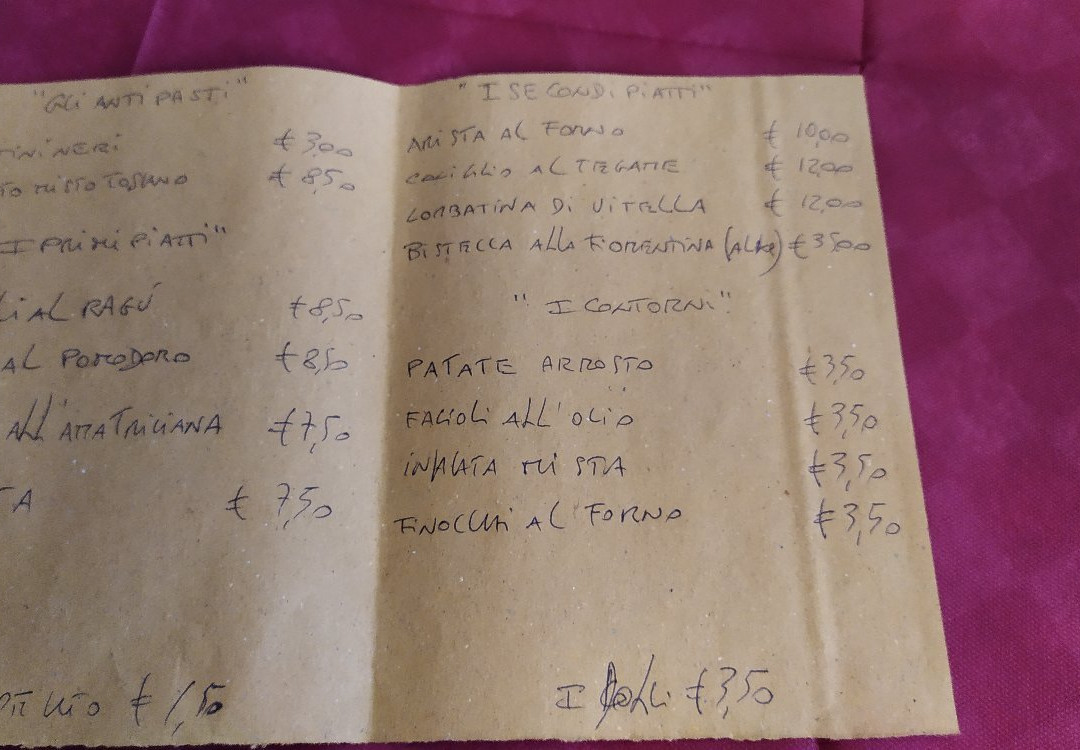 "GLI ANTIPASTI"
TINI NERI € 3,00
TO MISTO TOSCANO € 8,50
I PRIMI PIATTI"
LI AL RAGÚ € 8,50
AL POMODORO € 8,50
ALL'AMATRICIANA € 7,50
TA € 7,50
€ 1,50
"I SECONDI PIATTI"
ARISTA AL FORNO € 10,00
CONIGLIO AL TEGAME € 12,00
LOMBATINA DI VITELLA € 12,00
BISTECCA ALLA FIORENTINA € 35,00
"I CONTORNI"
PATATE ARROSTO € 3,50
FAGIOLI ALL'OLIO € 3,50
INSALATA MISTA € 3,50
FINOCCHI AL FORNO € 3,50
I DOLCI € 3,50